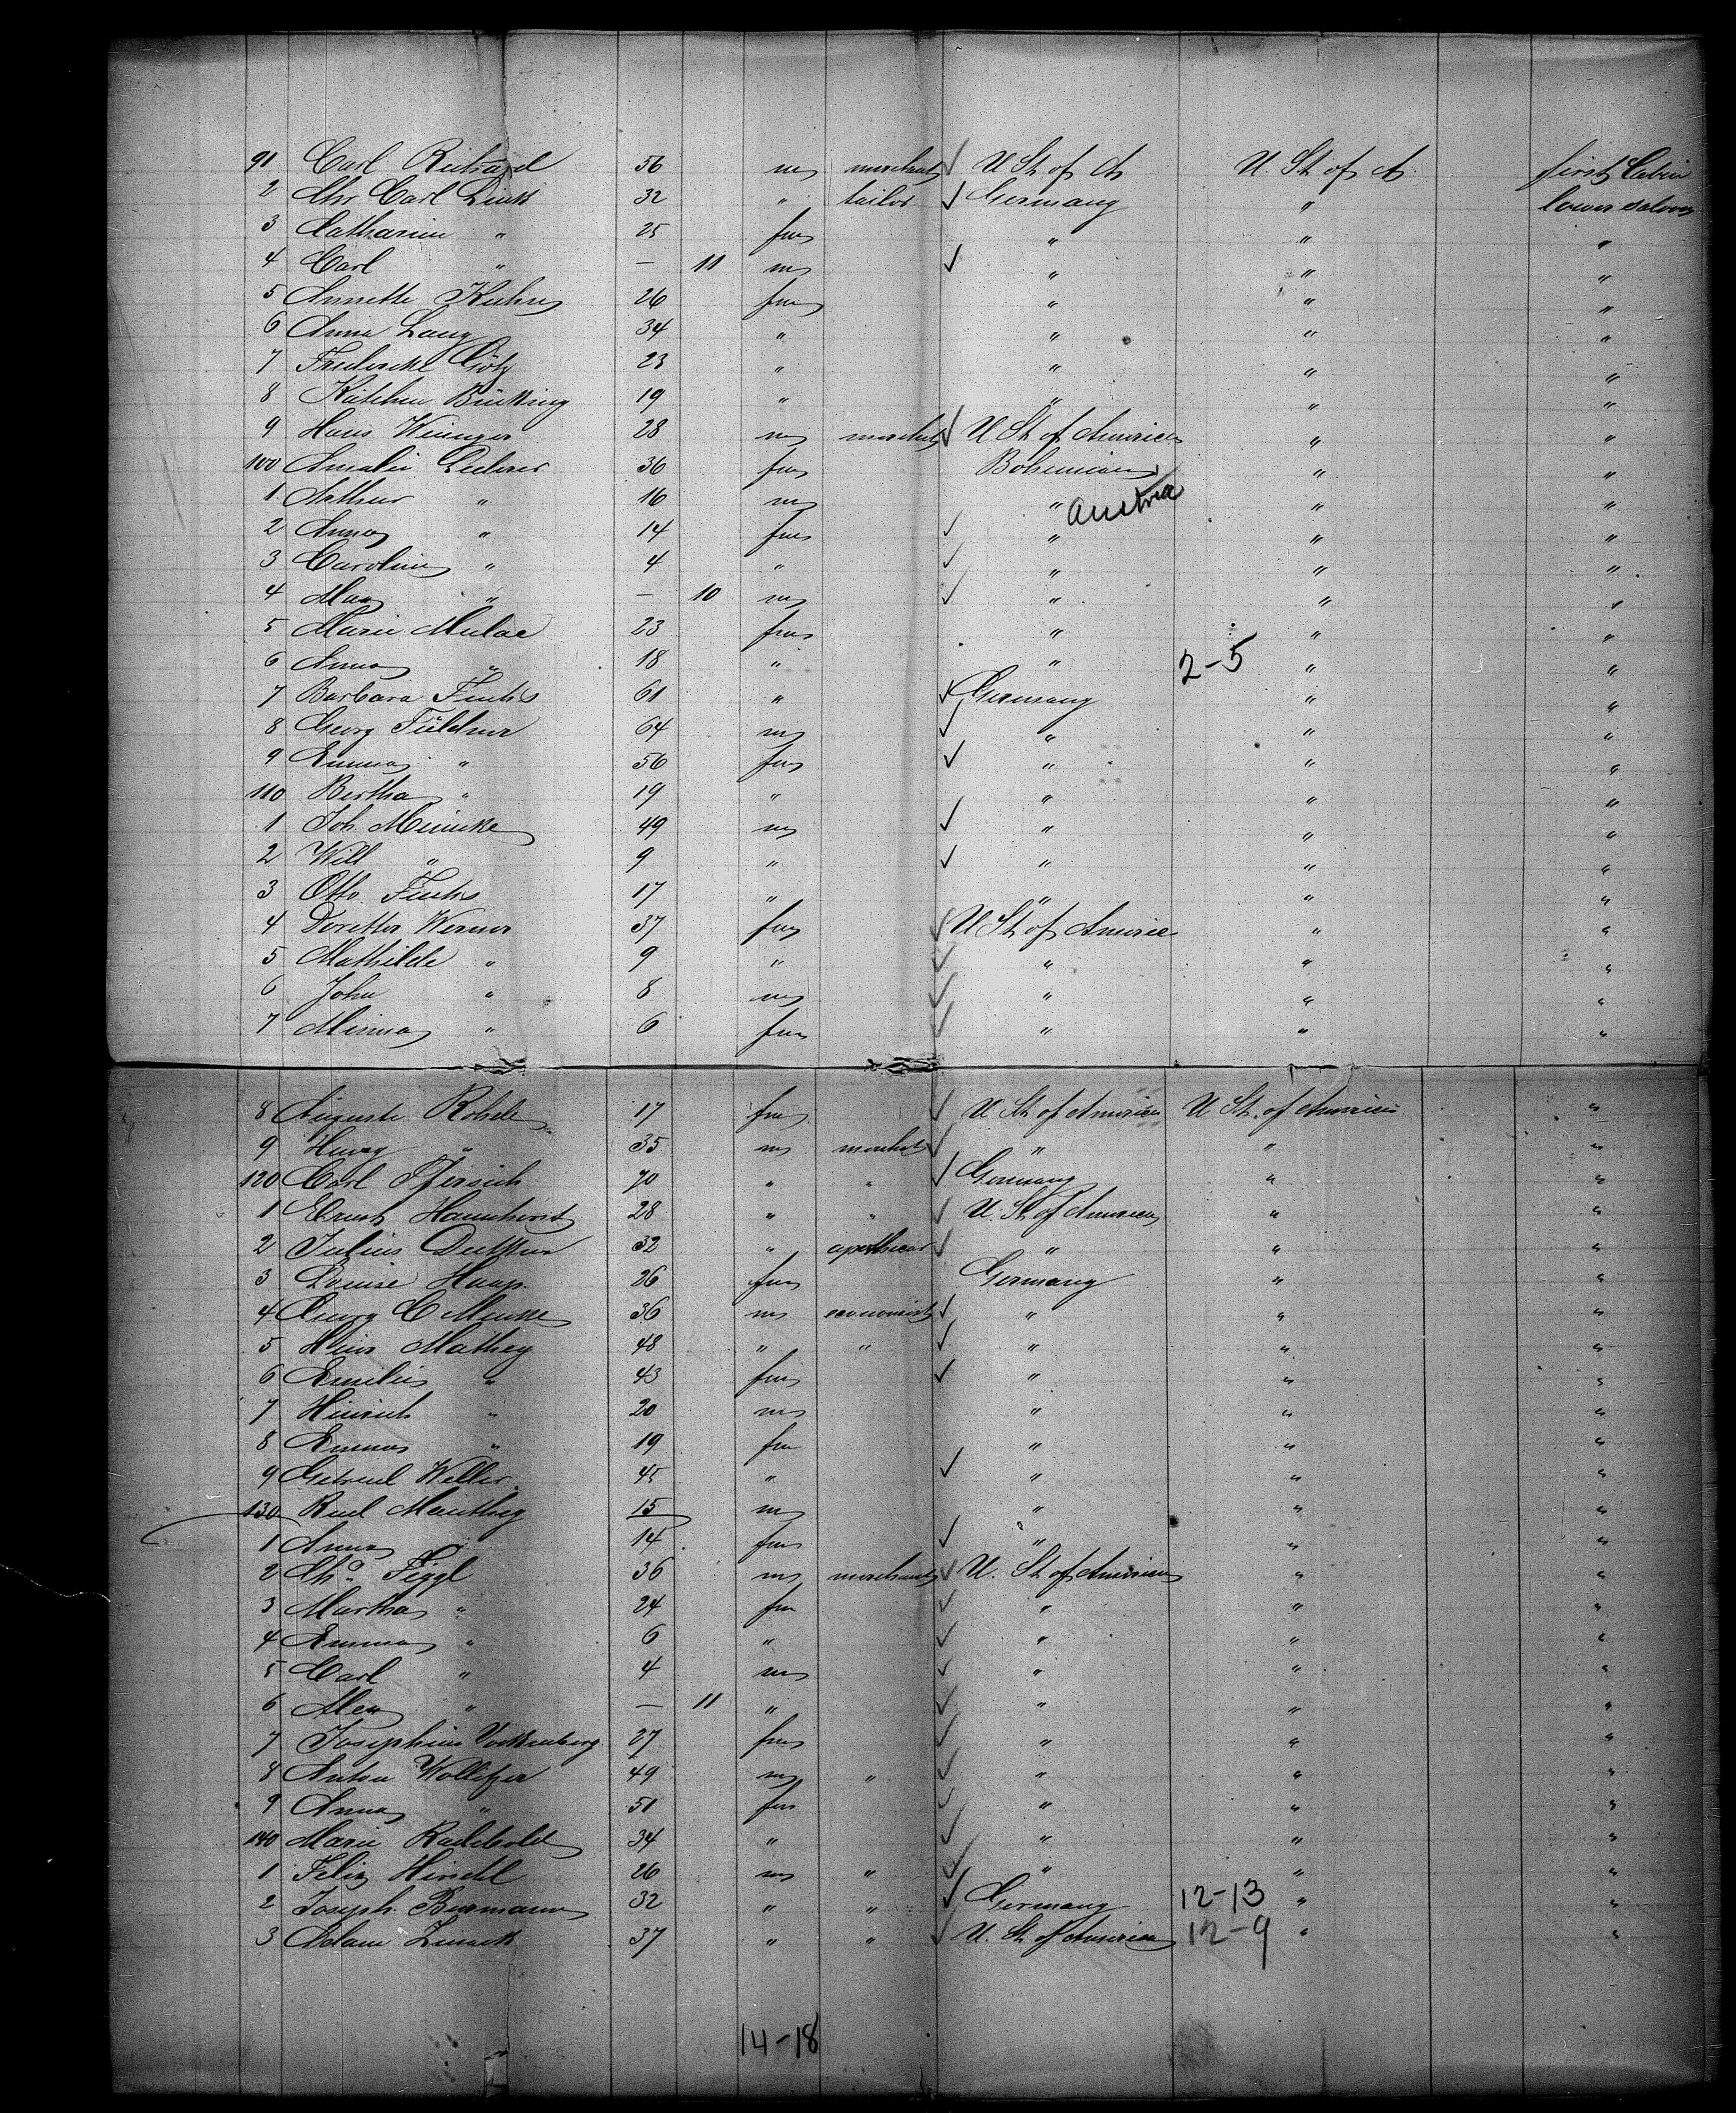 91 Carl Richard 56 m merchant U St of A U. St of A. first Cabin
2 Chr Carl Link 32 " tailor Germany " lower saloon
3 Catharine " 25 fm " " "
4 Carl " — 11 m " " "
5 Annette Kuhn 26 fm " " "
6 Anna Lang 34 " " " "
7 Friedericke Götz 23 " " " "
8 Käthchen Bücking 19 " " " "
9 Hans Weninger 28 m merchant U St of America " "
100 Amalie Lederer 36 fm Bohemian " "
1 Arthur " 16 m " Austria " "
2 Anna " 14 fm " " "
3 Caroline " 4 " " " "
4 Max " — 10 m " " "
5 Marie Mulac 23 fm " " "
6 Anna " 18 " " 2-5 " "
7 Barbara Fuchs 61 " Germany " "
8 Georg Füldner 64 m " " "
9 Emma " 56 fm " " "
110 Bertha " 19 " " " "
1 Joh Meincke 49 m " " "
2 Will " 9 " " " "
3 Otto Fuchs 17 " " " "
4 Doretta Werner 37 fm U St of America " "
5 Mathilde " 9 " " " "
6 John " 8 m " " "
7 Minna " 6 fm " " "
8 Auguste Rohde 17 fm U St of America U St. of America "
9 Henry " 35 m merchant " " "
120 Carl Pfersich 70 " " Germany " "
1 Ernst 28 " " U. St of America " "
2 Julius 32 " apothecar " " "
3 Louise Haap. 26 fm Germany " "
4 Georg C Mencke 36 m economist " " "
5 Heinr Mathey 48 " " " " "
6 Emilie " 43 fm " " "
7 Heinrich " 20 m " " "
8 Emma " 19 fm " " "
9 Weller 45 " " " "
130 Manthey 15 m " " "
1 Anna " 14 fm " " "
2 Figgl 36 m merchant U. St of America " "
3 Martha " 24 fm " " "
4 Emma " 6 " " " "
5 Carl " 4 m " " "
6 Alex " — 11 " " " "
7 Josephine Vockenberg 27 fm " " "
8 Anton Wollitzer 49 m " " " "
9 Anna " 51 fm " " "
140 Marie Radebold 34 " " " "
1 Felix Hirschl 26 m " " " "
2 Joseph Burmann 32 " " Germany 12-13 " "
3 Adam 37 " " U. St of America 12-9 " "
14-18